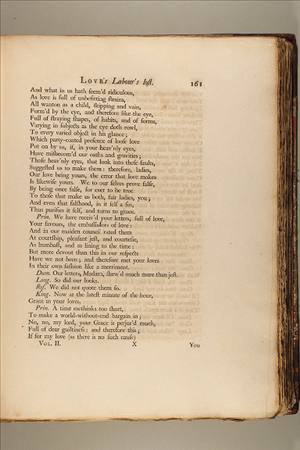 LOVE's Labour's lost. 161
And what in us hath seem'd ridiculous,
As love is full of unbefitting strains,
All wanton as a child, skipping and vain,
Form'd by the eye, and therefore like the eye,
Full of straying shapes, of habits, and of forms,
Varying in subjects as the eye doth rowl,
To every varied object in his glance;
Which party-coated presence of loose love
Put on by us, if, in your heav'nly eyes,
Have misbecom'd our oaths and gravities;
Those heav'nly eyes, that look into these faults,
Suggested us to make them: therefore, ladies,
Our love being yours, the error that love makes
Is likewise yours. We to our selves prove false,
By being once false, for ever to be true
To those that make us both, fair ladies, you;
And even that falshood, in it self a sin,
Thus purifies it self, and turns to grace.
Prin. We have receiv'd your letters, full of love,
Your favours, the embassadors of love:
And in our maiden council rated them
At courtship, pleasant jest, and courtesie,
As bumbast, and as lining to the time:
But more devout than this in our respects
Have we not been; and therefore met your loves
In their own fashion like a merriment.
Dum. Our letters, Madam, shew'd much more than jest.
Long. So did our looks.
Ros. We did not quote them so.
King. Now at the latest minute of the hour,
Grant us your loves.
Prin. A time methinks too short,
To make a world-without-end bargain in;
No, no, my lord, your Grace is perjur'd much,
Full of dear guiltiness: and therefore this;
If for my love (as there is no such cause)
VOL. II. X You